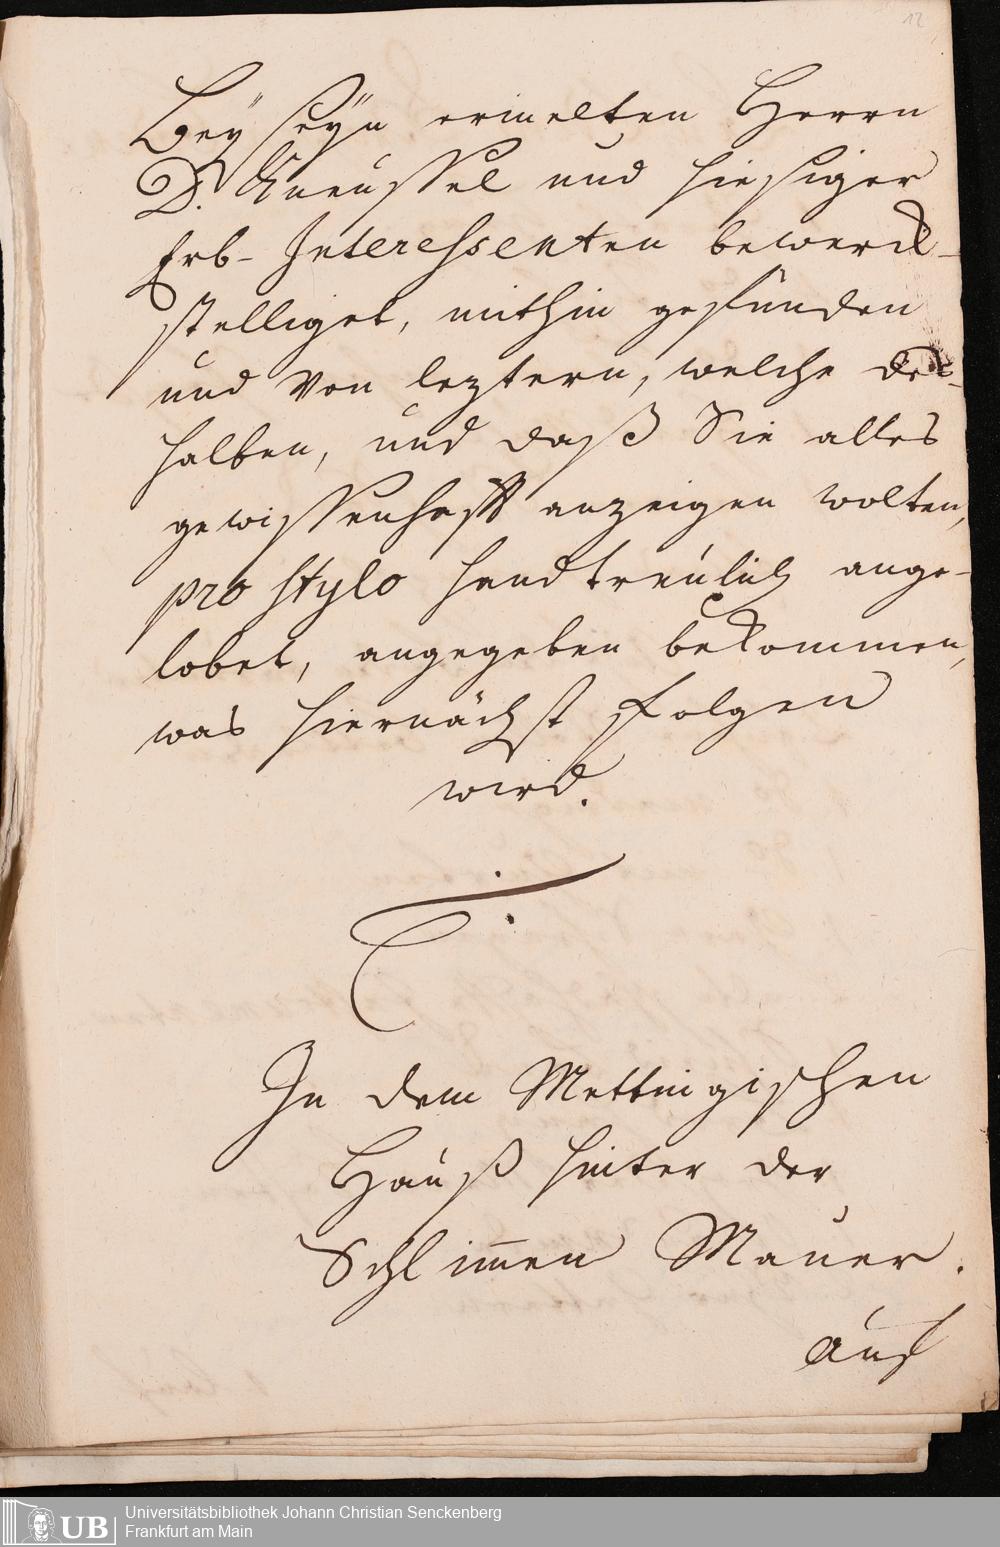 12
Beÿseÿn ermelten Herrn
D. Kneussel und hiesiger
Erb-Interessenten bewerck-
stelliget, mithin gefunden
und von leztern, welche des-
halben, und daß Sie alles
gewissenhafft anzeigen wolten,
pro stylo handtreulich ange-
lobet, angegeben bekommen,
was hiernächst folgen
wird.
In dem Mettingischen
Hauß hinter der
Schlimmen Mauer.
auf
Universitätsbibliothek Johann Christian Senckenberg
Frankfurt am Main
UB